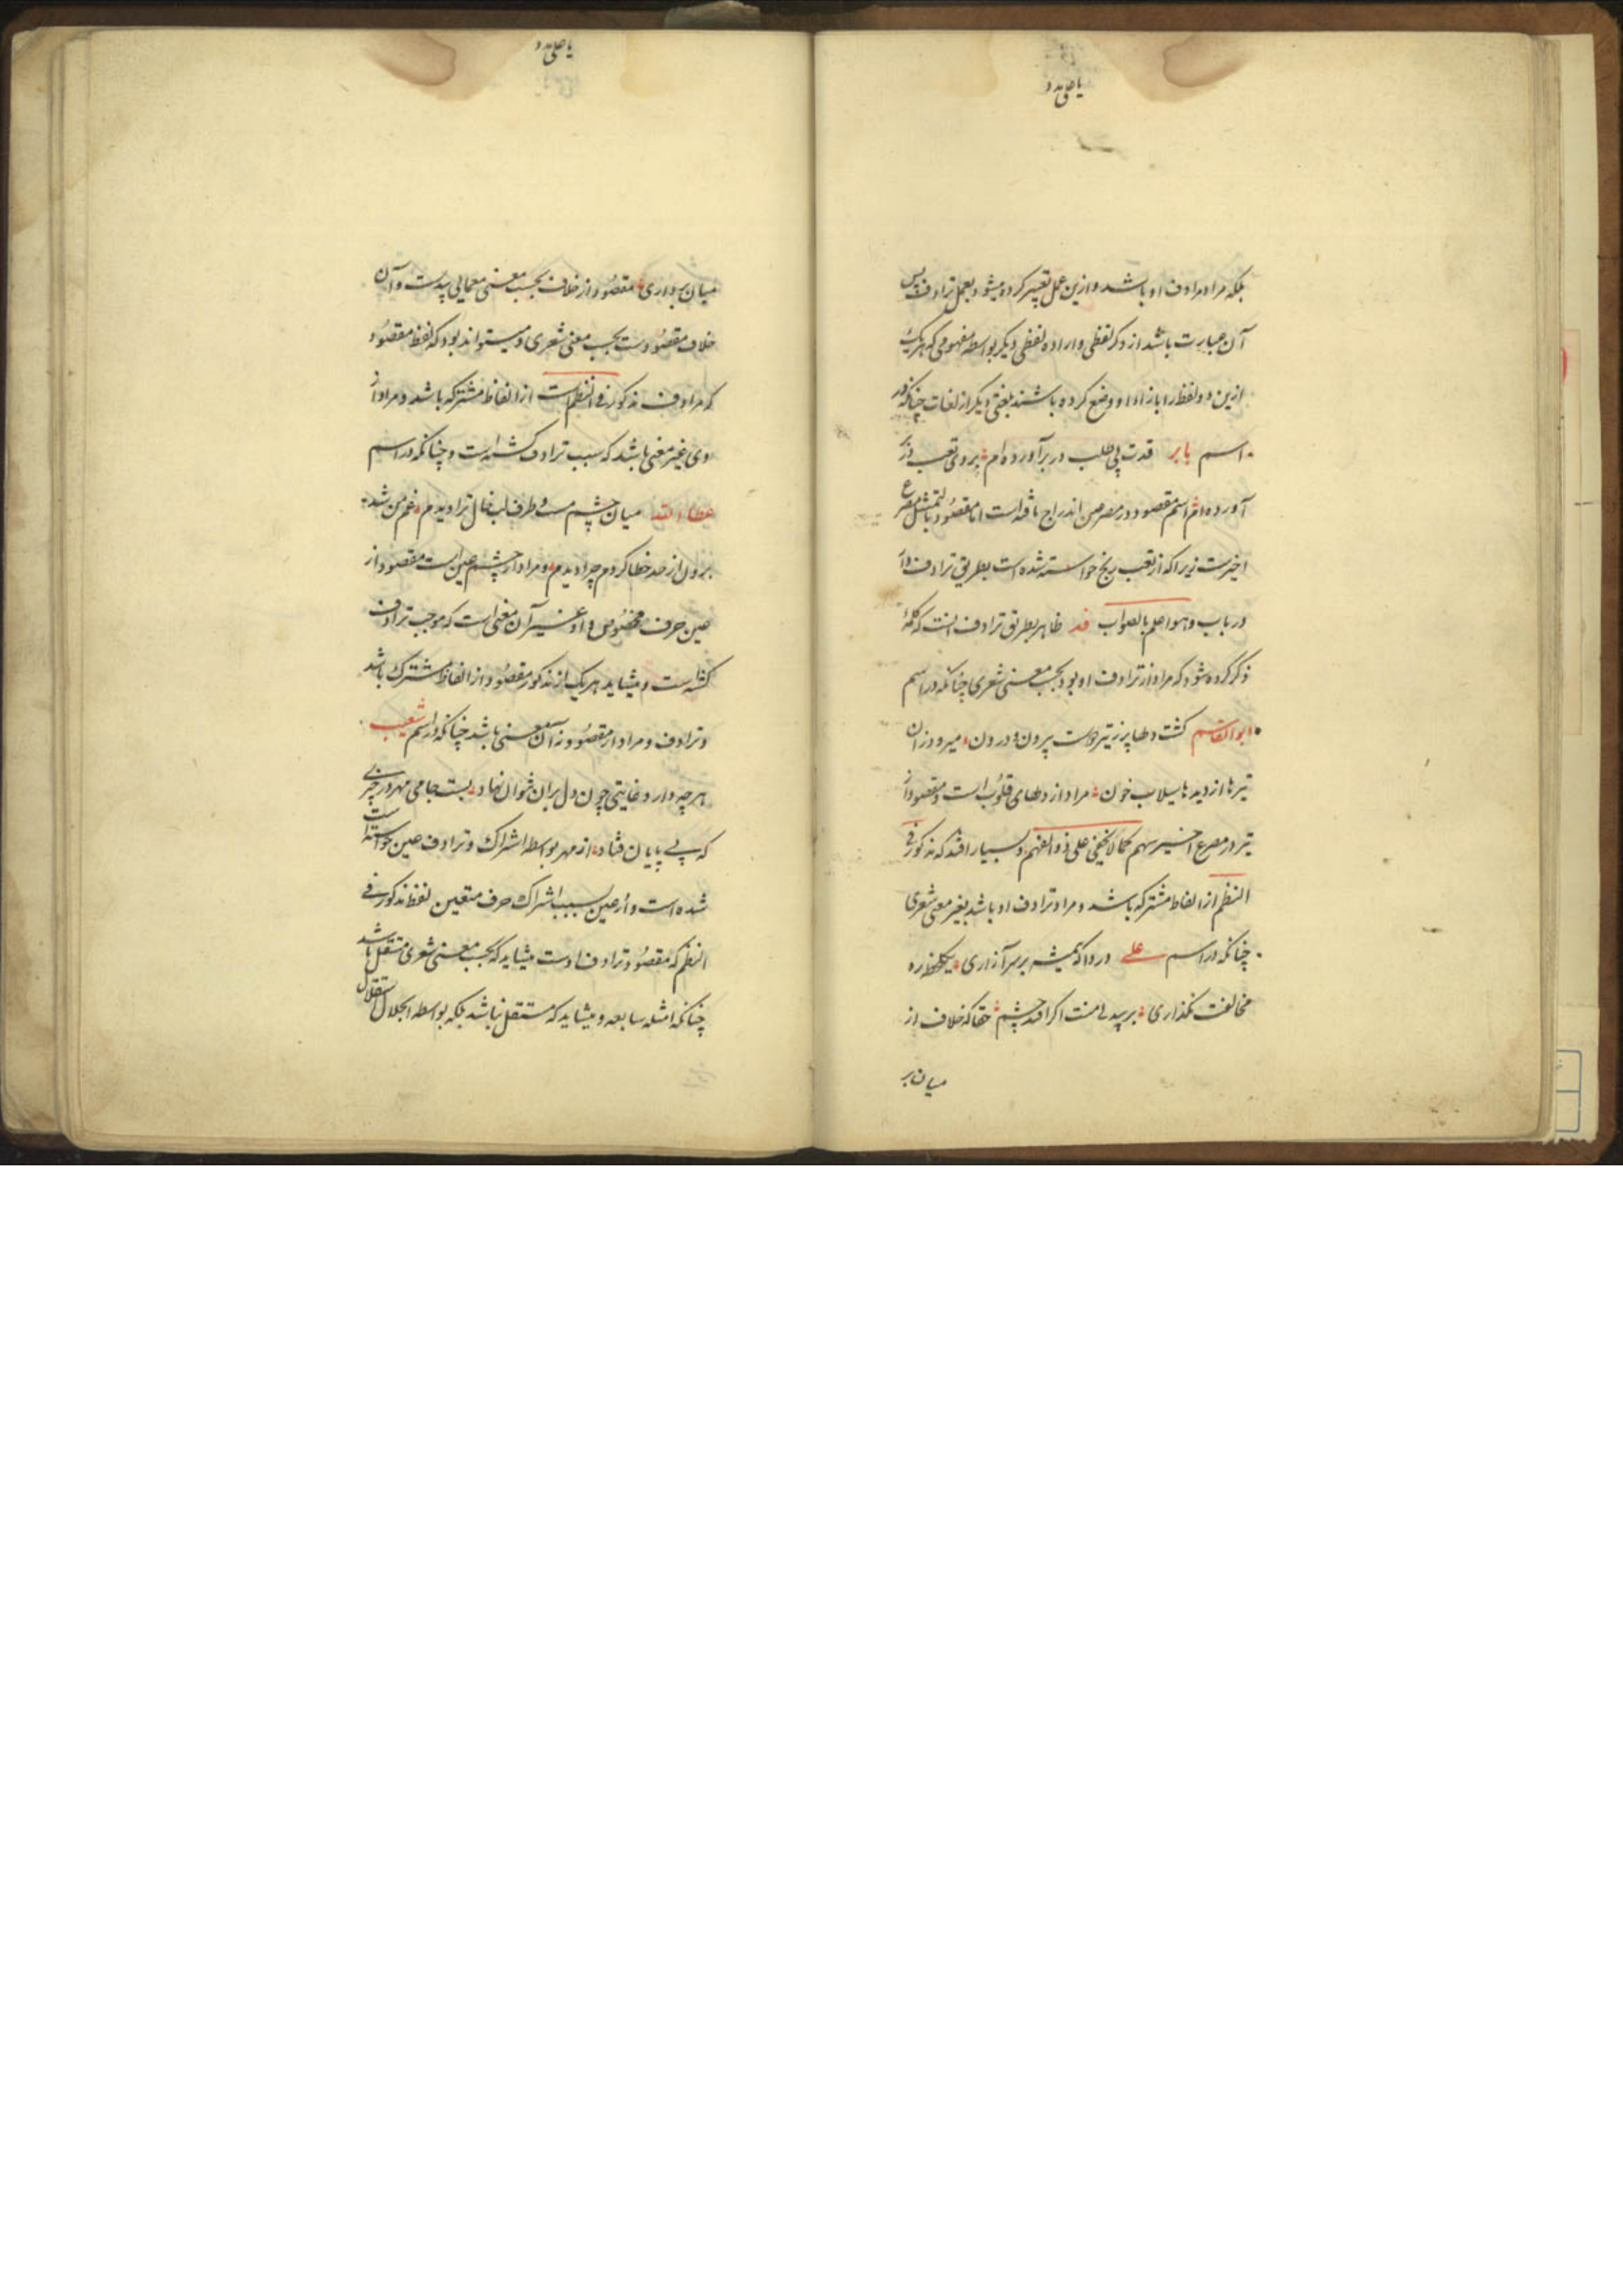 یا علی مدد
بلکه مراد مرادف او باشد و ازین عمل تعبیر کرده میشود بعمل ترادف پس
آن عبارت باشد از ذکر لفظی و اراده لفظی دیگر بواسطه مفهومی که هریک
ازین دو لفظ را بازاء او وضع کرده باشند بلغتی دیگر از لغات چنانکه در
اسم بابر قدت پی طلب در بر آورده ام بروی تعب در
آورده ام اسم مقصود در مصرعین اندراج یافته است اما مقصود بالتمثیل مصرع
اخیرست زیرا که از تعب رنج خواسته شده است بطریق ترادف
در باب وهو اعلم بالصواب قد ظاهر بطریق ترادف آنست که کلمهٔ
ذکر کرده شود که مراد از ترادف او بود بحسب معنی شعری چنانکه در اسم
ابوالقاسم کشت دلها پر ز تیر دوست بیرون و درون میرود زان
تیرها از دیدها سیلاب خون مراد از دلهای قلوب است و مقصود از
تیر در مصرع اخیر سهم کما لا یخفی علی ذو الفهم و بسیار افتد که مذکور فی
النظم از الفاظ مشترکه باشد و مراد ترادف او باشد بغیر معنی شعری
چنانکه در اسم علی دردا که همیشه بر سر آزاری یکلحظه ره
مخالفت نگذاری بر بیدل منت اگر افتد چشم حقا که خلاف از
میان بر
یا علی مدد
میان برداری مقصود از خلاف بحسب معنی معمایی بیدست و آن
خلاف مقصودست بحسب معنی شعری و میتواند بود که لفظ مقصود
که مرادف مذکور فی النظم است از الفاظ مشترکه باشد و مراد از
وی غیر معنی باشد که سبب ترادف کشته است و چنانکه در اسم
عطاء الله میان چشم مست و طرف لب خال ترا دیدم غم من شد
برون از حد خطا کردم چرا دیدم و مراد از چشم عین است مقصود از
عین حرف مخصوص و او غیر آن معنی است که موجب ترادف
کشته است و میشاید هر یک از مذکور مقصود از الفاظ مشترک باشد
و ترادف و مراد از مقصود نه آن معنی باشد چنانکه در اسم شعیب
هر چه دارد غایتی چون دل بران نتوان نهاد بست جامی مهر در چیزی
که بی پایان فتاد از مهر بواسطه اشتراک و ترادف عین خواسته
شده است و از عین بسبب اشتراک حرف متعین لفظ مذکور فی
النظم که مقصود ترادف اوست میشاید که بحسب معنی شعری مستقل باشد
چنانکه امثله سابعه و میشاید که مستقل نباشد بلکه بواسطه انحلال استقلال